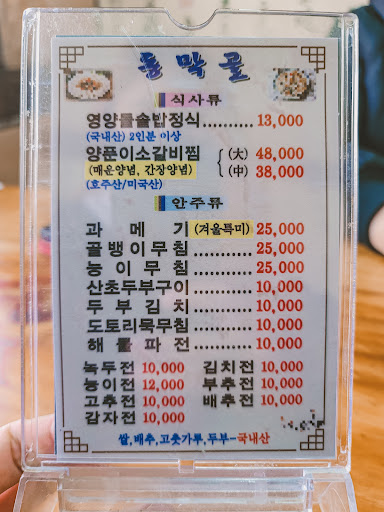 들 막 골
식사류
영양돌솥밥정식.......... 13,000
(국내산) 2인분 이상
양푼이소갈비찜 (大) 48,000
(매운양념, 간장양념) (中) 38,000
(호주산/미국산)
안주류
과 메 기 (겨울특미) 25,000
골뱅이무침............ 25,000
능 이 무 침............ 25,000
산초두부구이............ 10,000
두 부 김 치............ 10,000
도토리묵무침............ 10,000
해 물 파 전............ 10,000
녹두전 10,000 김치전 10,000
능이전 12,000 부추전 10,000
고추전 10,000 배추전 10,000
감자전 10,000
쌀,배추,고춧가루,두부-국내산